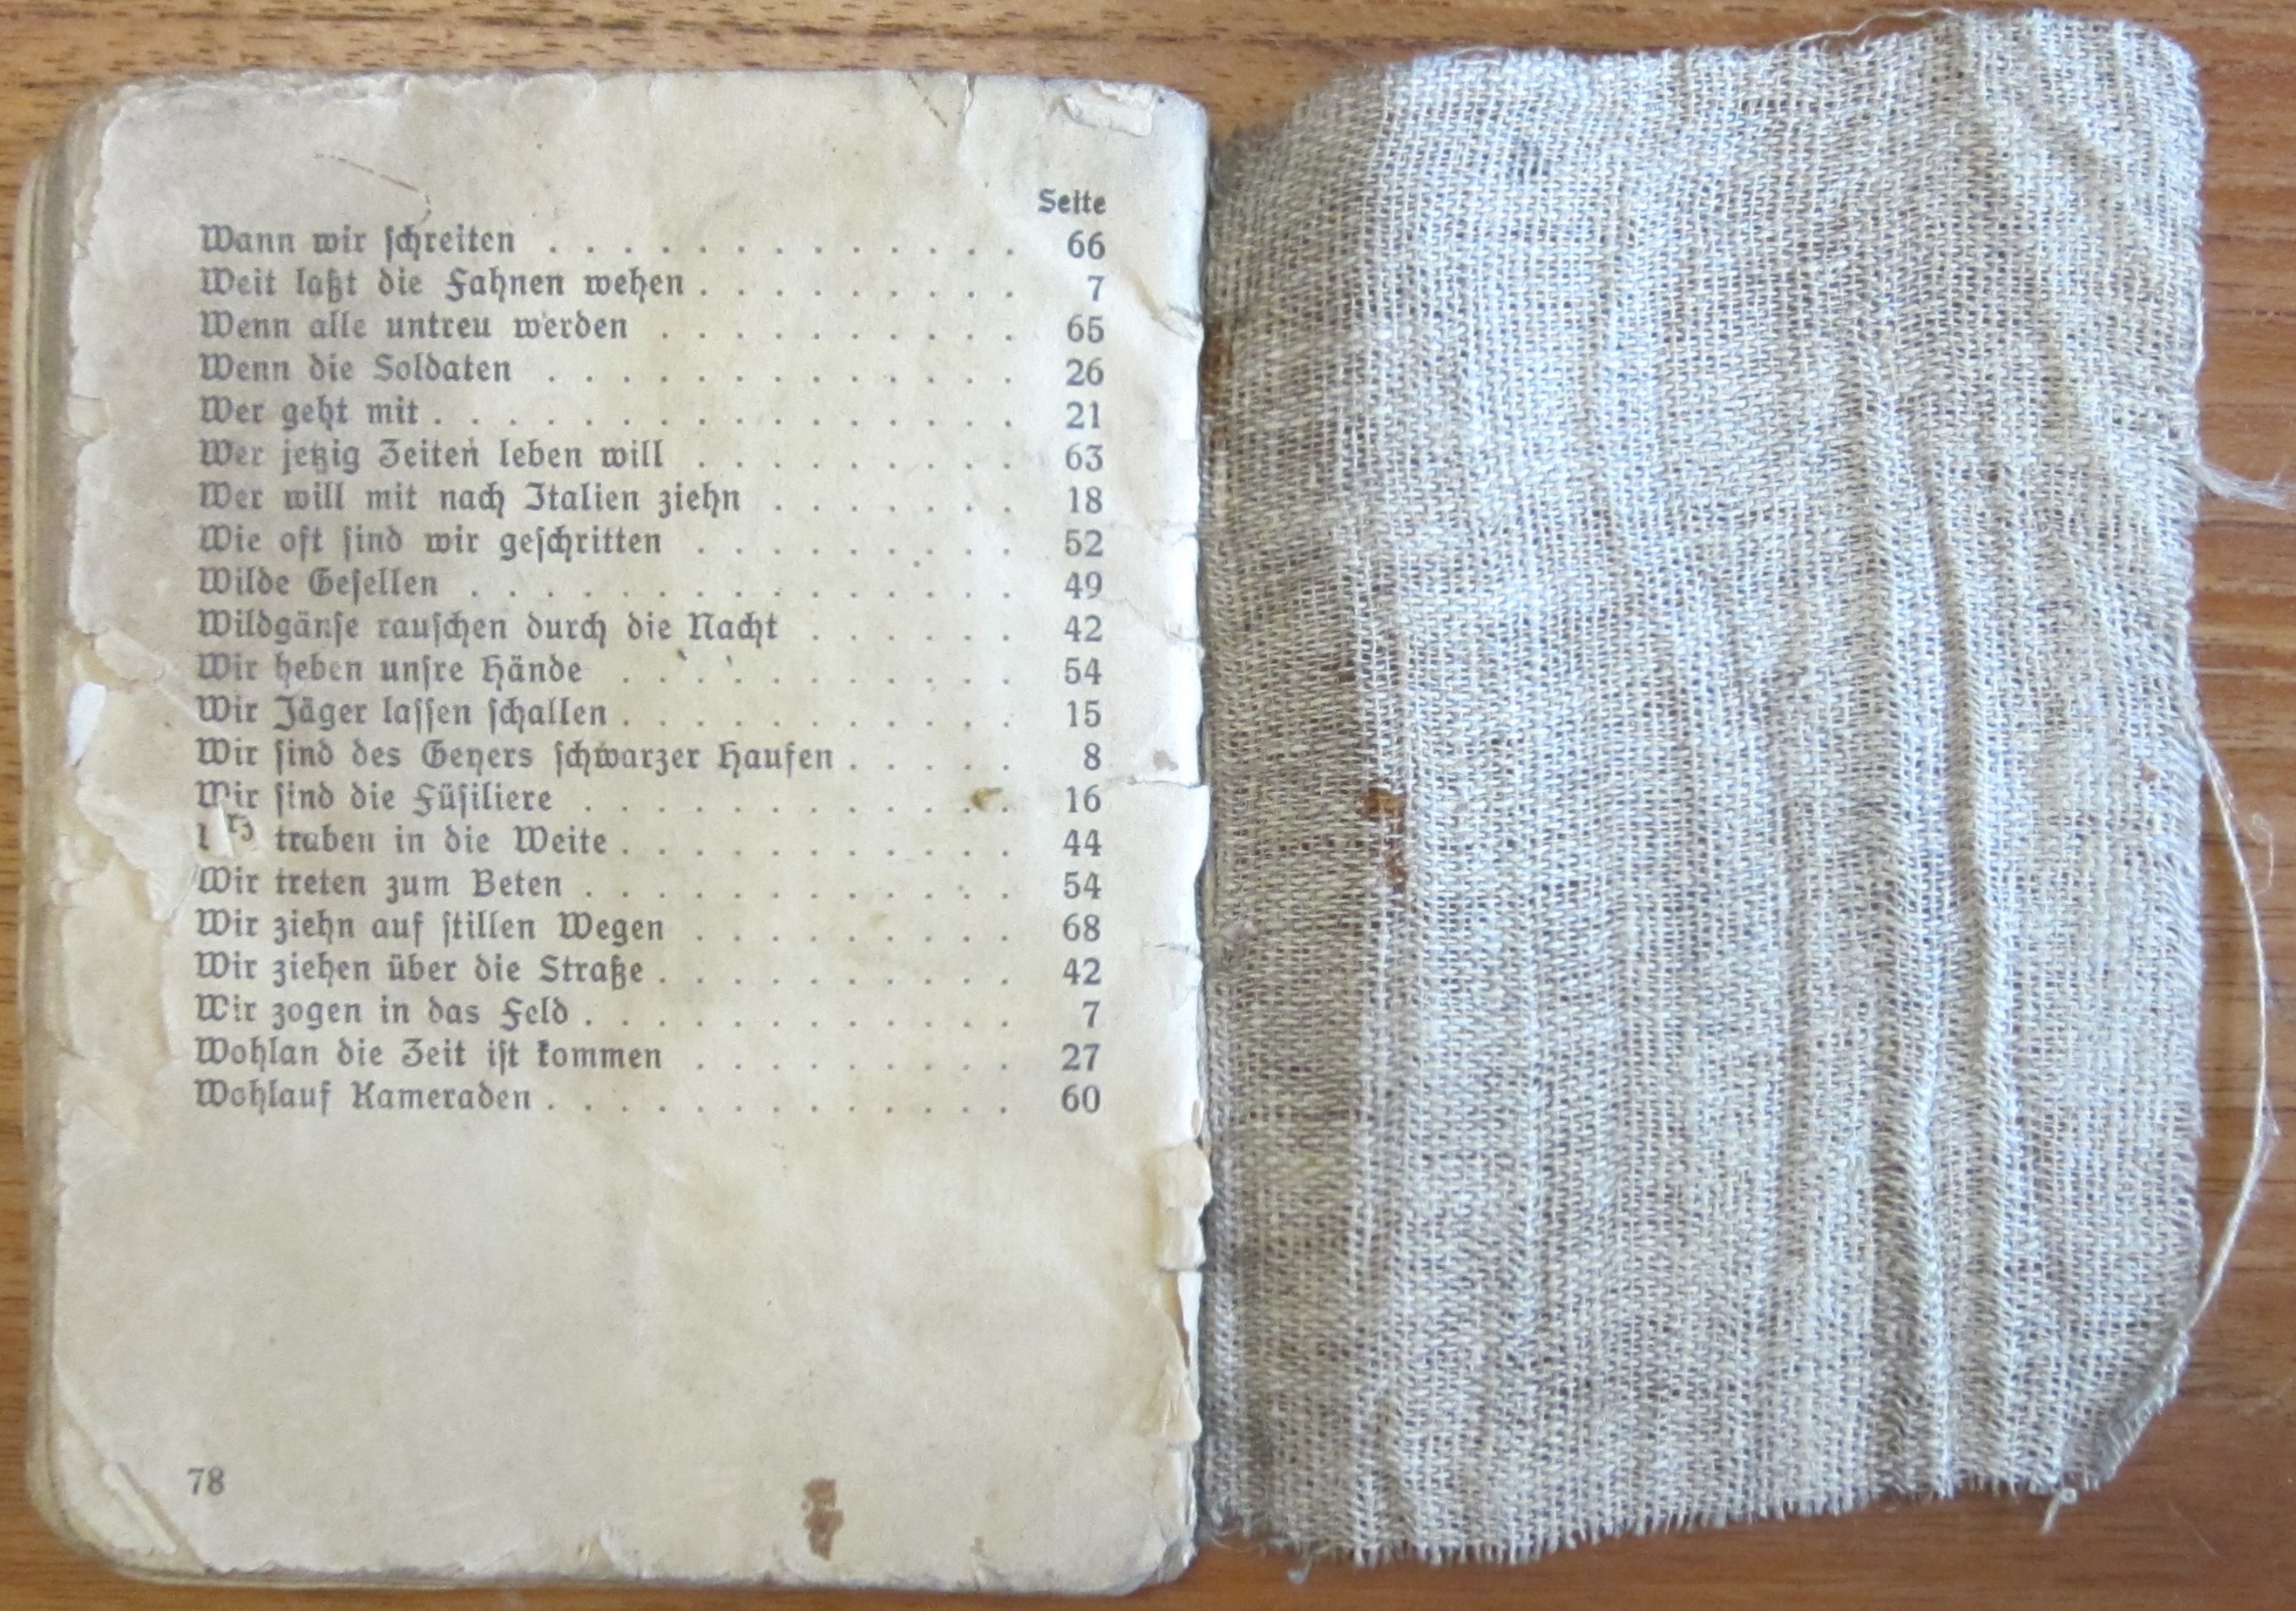 Seite
Wann wir schreiten . . . . . . . . . . . . . 66
Weit laßt die Fahnen wehen . . . . . . . . . 7
Wenn alle untreu werden . . . . . . . . . . 65
Wenn die Soldaten . . . . . . . . . . . . . 26
Wer geht mit . . . . . . . . . . . . . . . . 21
Wer jetzig Zeiten leben will . . . . . . . . . 63
Wer will mit nach Italien ziehn . . . . . . . 18
Wie oft sind wir geschritten . . . . . . . . . 52
Wilde Gesellen . . . . . . . . . . . . . . . 49
Wildgänse rauschen durch die Nacht . . . . . . 42
Wir heben unsre Hände . . . . . . . . . . . 54
Wir Jäger lassen schallen . . . . . . . . . . . 15
Wir sind des Geyers schwarzer Haufen . . . . . 8
Wir sind die Füsiliere . . . . . . . . . . . . 16
traben in die Weite . . . . . . . . . . . 44
Wir treten zum Beten . . . . . . . . . . . . 54
Wir ziehn auf stillen Wegen . . . . . . . . . 68
Wir ziehen über die Straße . . . . . . . . . . 42
Wir zogen in das Feld . . . . . . . . . . . . 7
Wohlan die Zeit ist kommen . . . . . . . . . 27
Wohlauf Kameraden . . . . . . . . . . . . . 60
78